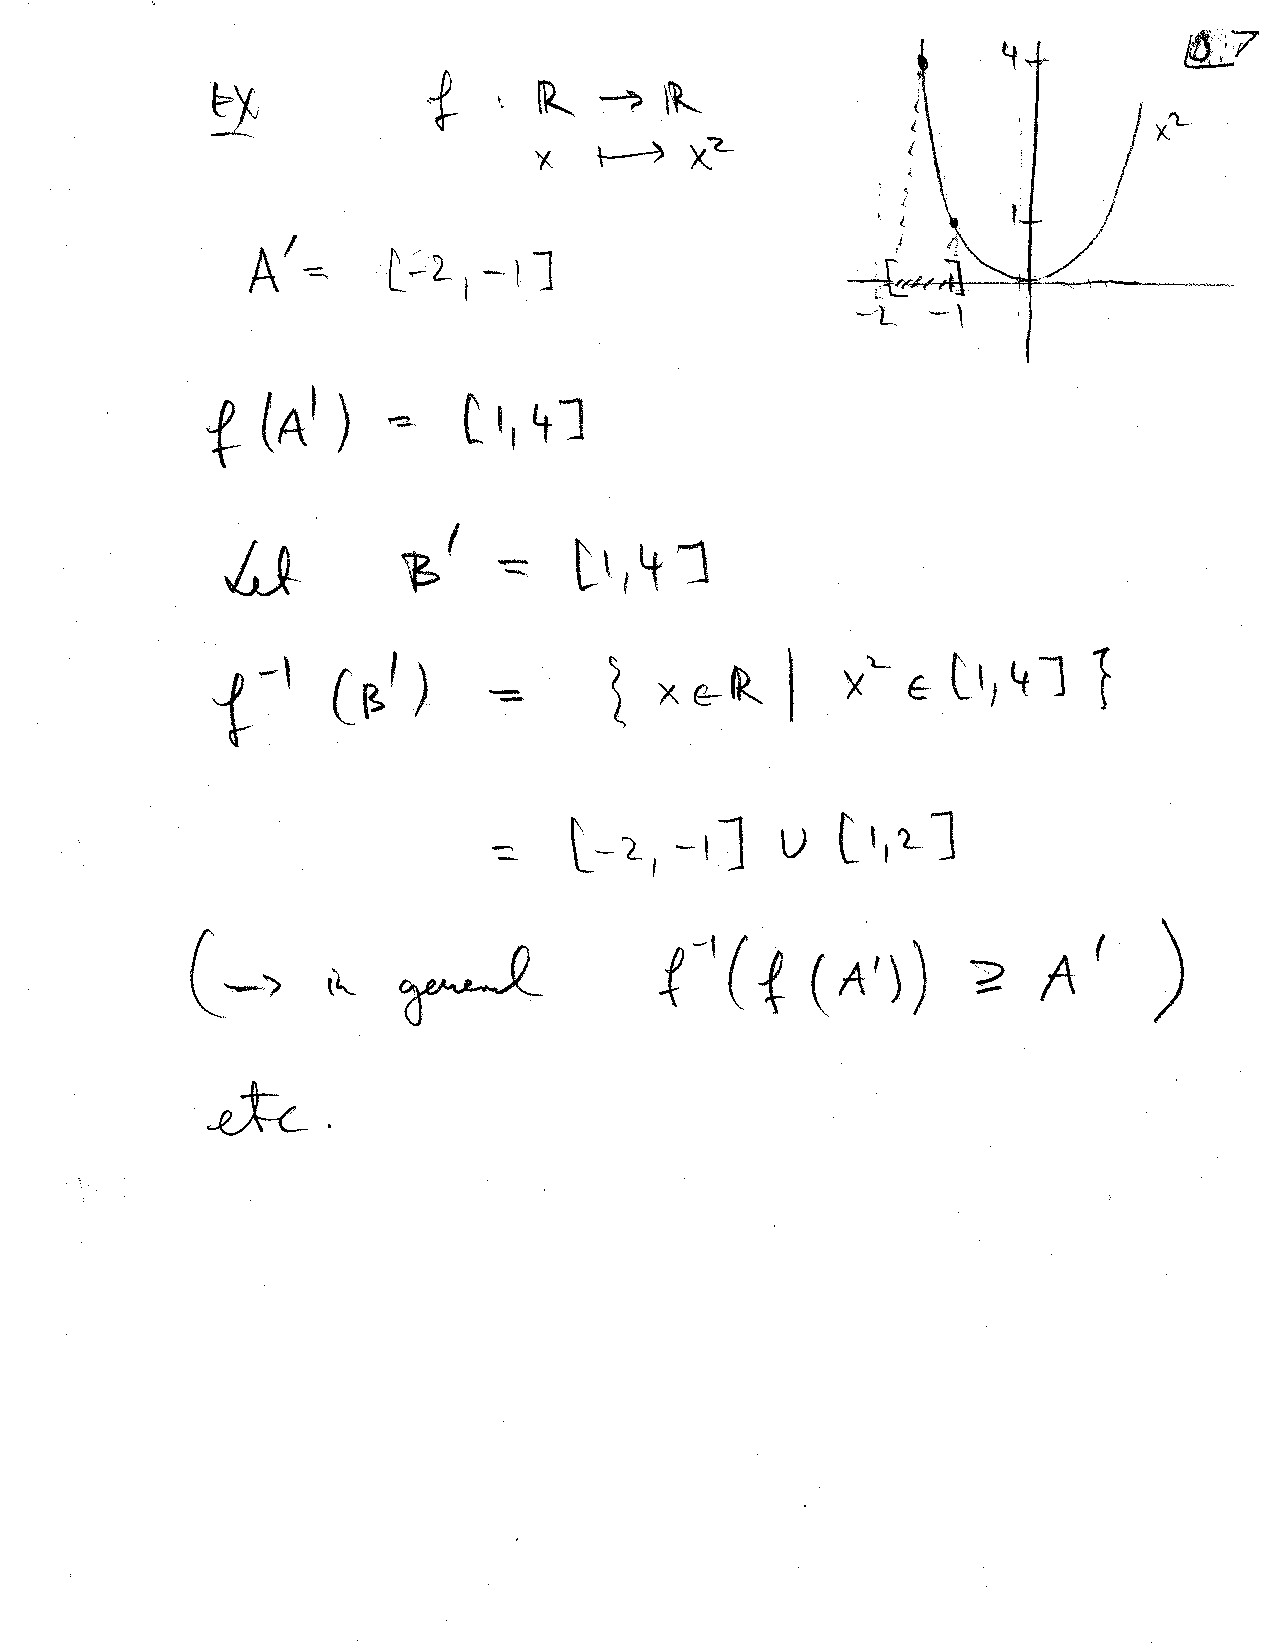 0.7
Ex f : ℝ → ℝ
x ↦ x²
4
x²
1
-2 -1
A' = [-2, -1]
f(A') = [1, 4]
Let B' = [1, 4]
f⁻¹(B') = { x ∈ ℝ | x² ∈ [1, 4] }
= [-2, -1] ∪ [1, 2]
(→ in general f⁻¹(f(A')) ⊇ A' )
etc.